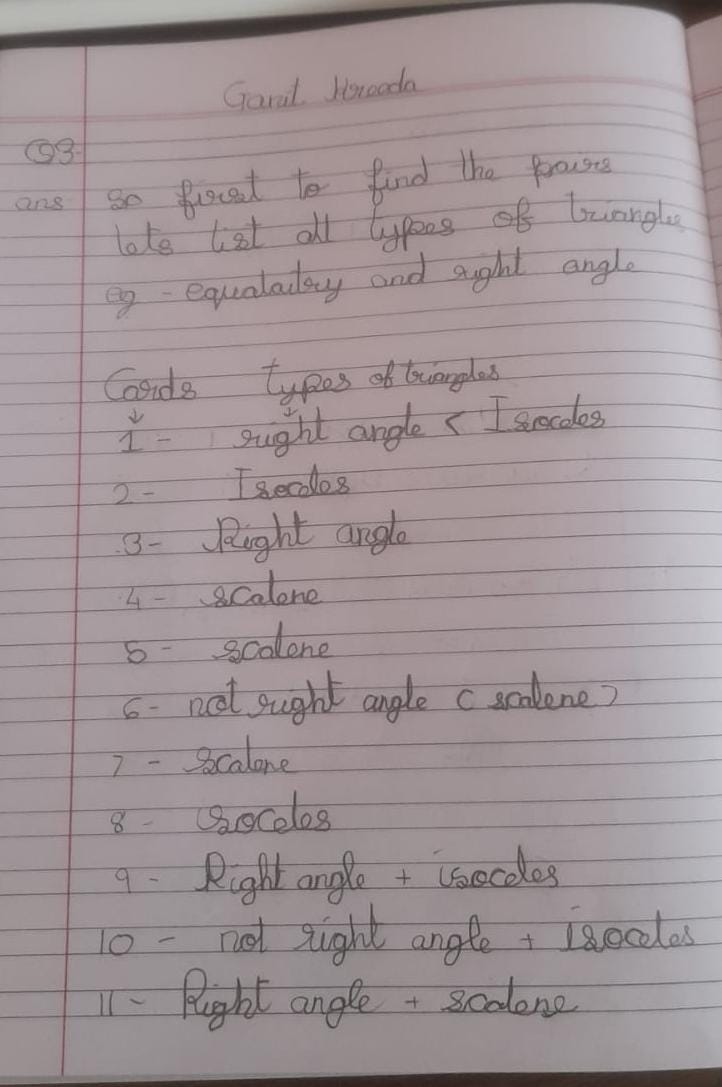 Ganit Kreeda
Q3
ans so first to find the pairs
lets list all types of triangles
eg - equalaitory and right angle
Cards types of triangles
↓ ↓
1 - right angle < Isocoles
2 - Isocoles
3 - Right angle
4 - scalene
5 - scalene
6 - not right angle ( scalene )
7 - scalene
8 - isoceles
9 - Right angle + isoceles
10 - not right angle + isoceles
11 - Right angle + scalene